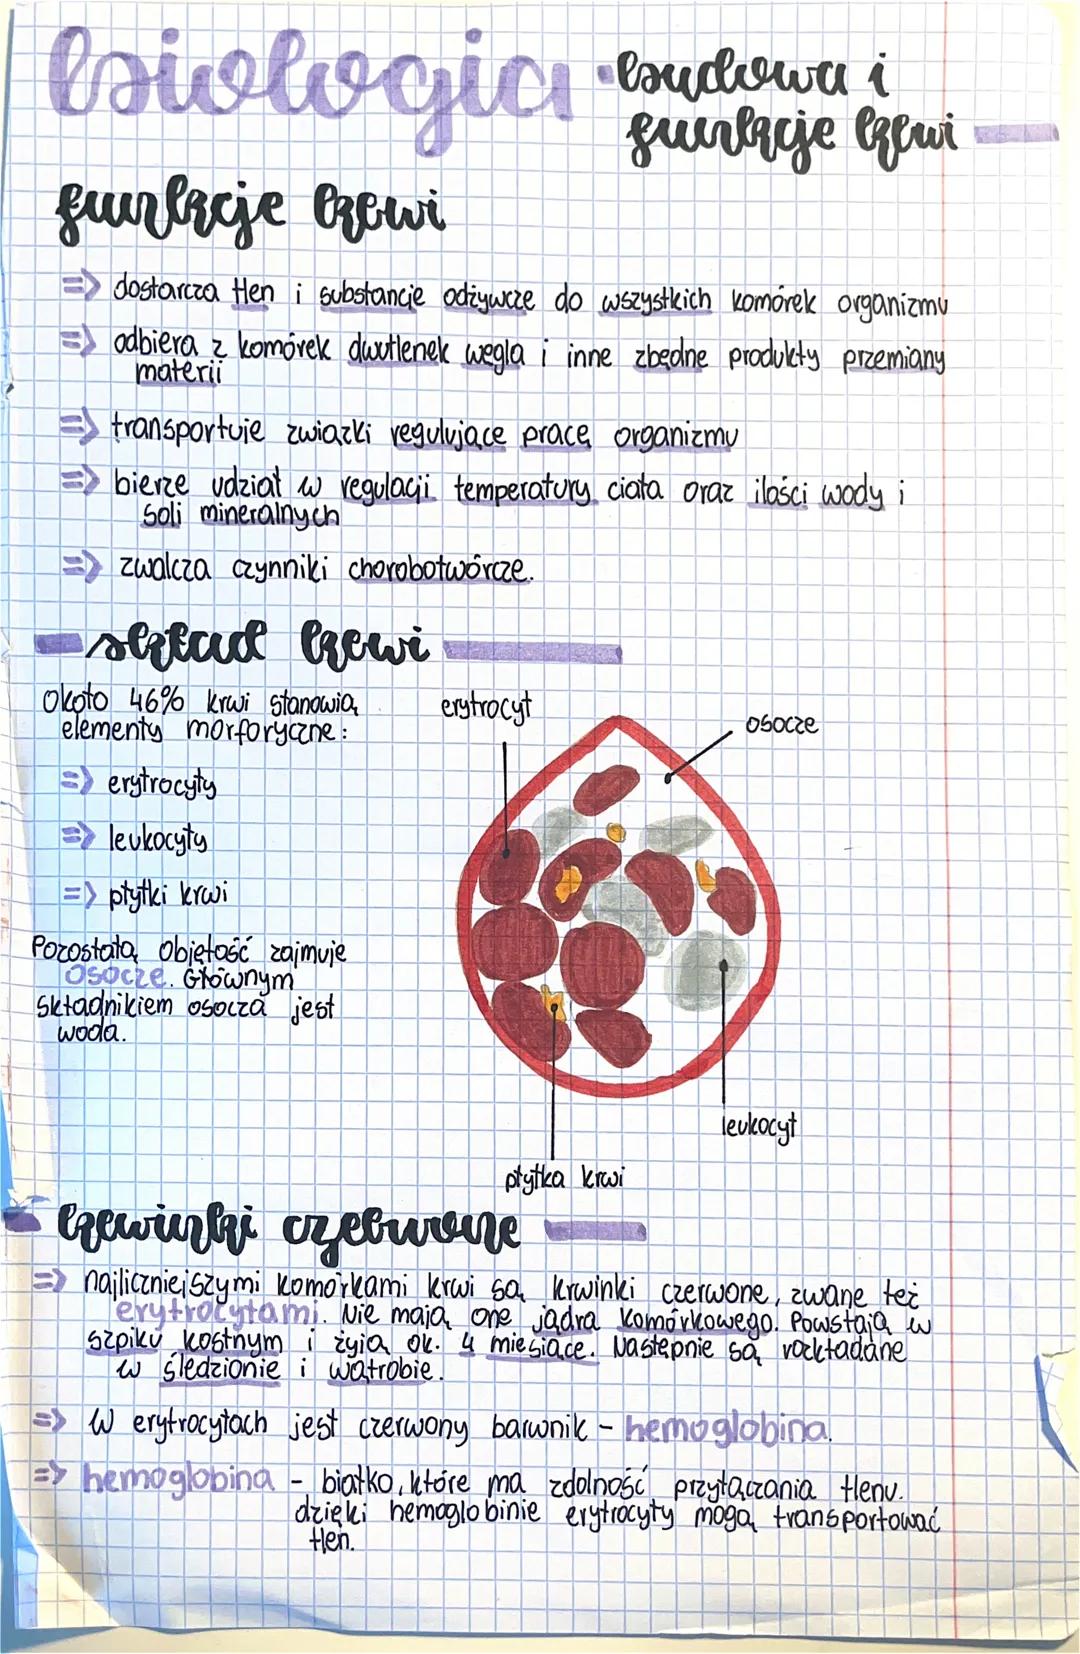 biologia
• budowa i
funkcje krwi
funkcje krwi
=> dostarcza tlen i substancje odżywcze do wszystkich komórek organizmu
=> odbiera z komórek dwutlenek węgla i inne zbędne produkty przemiany
materii
=> transportuje związki regulujące pracę organizmu
=> bierze udział w regulacji temperatury ciała oraz ilości wody i
soli mineralnych
=> zwalcza czynniki chorobotwórcze.
skład krwi
Około 46% krwi stanowią
elementy morforyczne:
=> erytrocyty
=> leukocyty
=> płytki krwi
Pozostałą objętość zajmuje
osocze. Głównym
składnikiem osocza jest
woda.
erytrocyt
osocze
leukocyt
płytka krwi
krwinki czerwone
=> najliczniejszymi komórkami krwi są krwinki czerwone, zwane też
erytrocytami. Nie mają one jądra komórkowego. Powstają w
szpiku kostnym i żyją ok. 4 miesiące. Następnie są rozkładane
w śledzionie i wątrobie.
=> W erytrocytach jest czerwony barwnik - hemoglobina.
=> hemoglobina - białko, które ma zdolność przyłączania tlenu.
dzięki hemoglobinie erytrocyty mogą transportować
tlen.